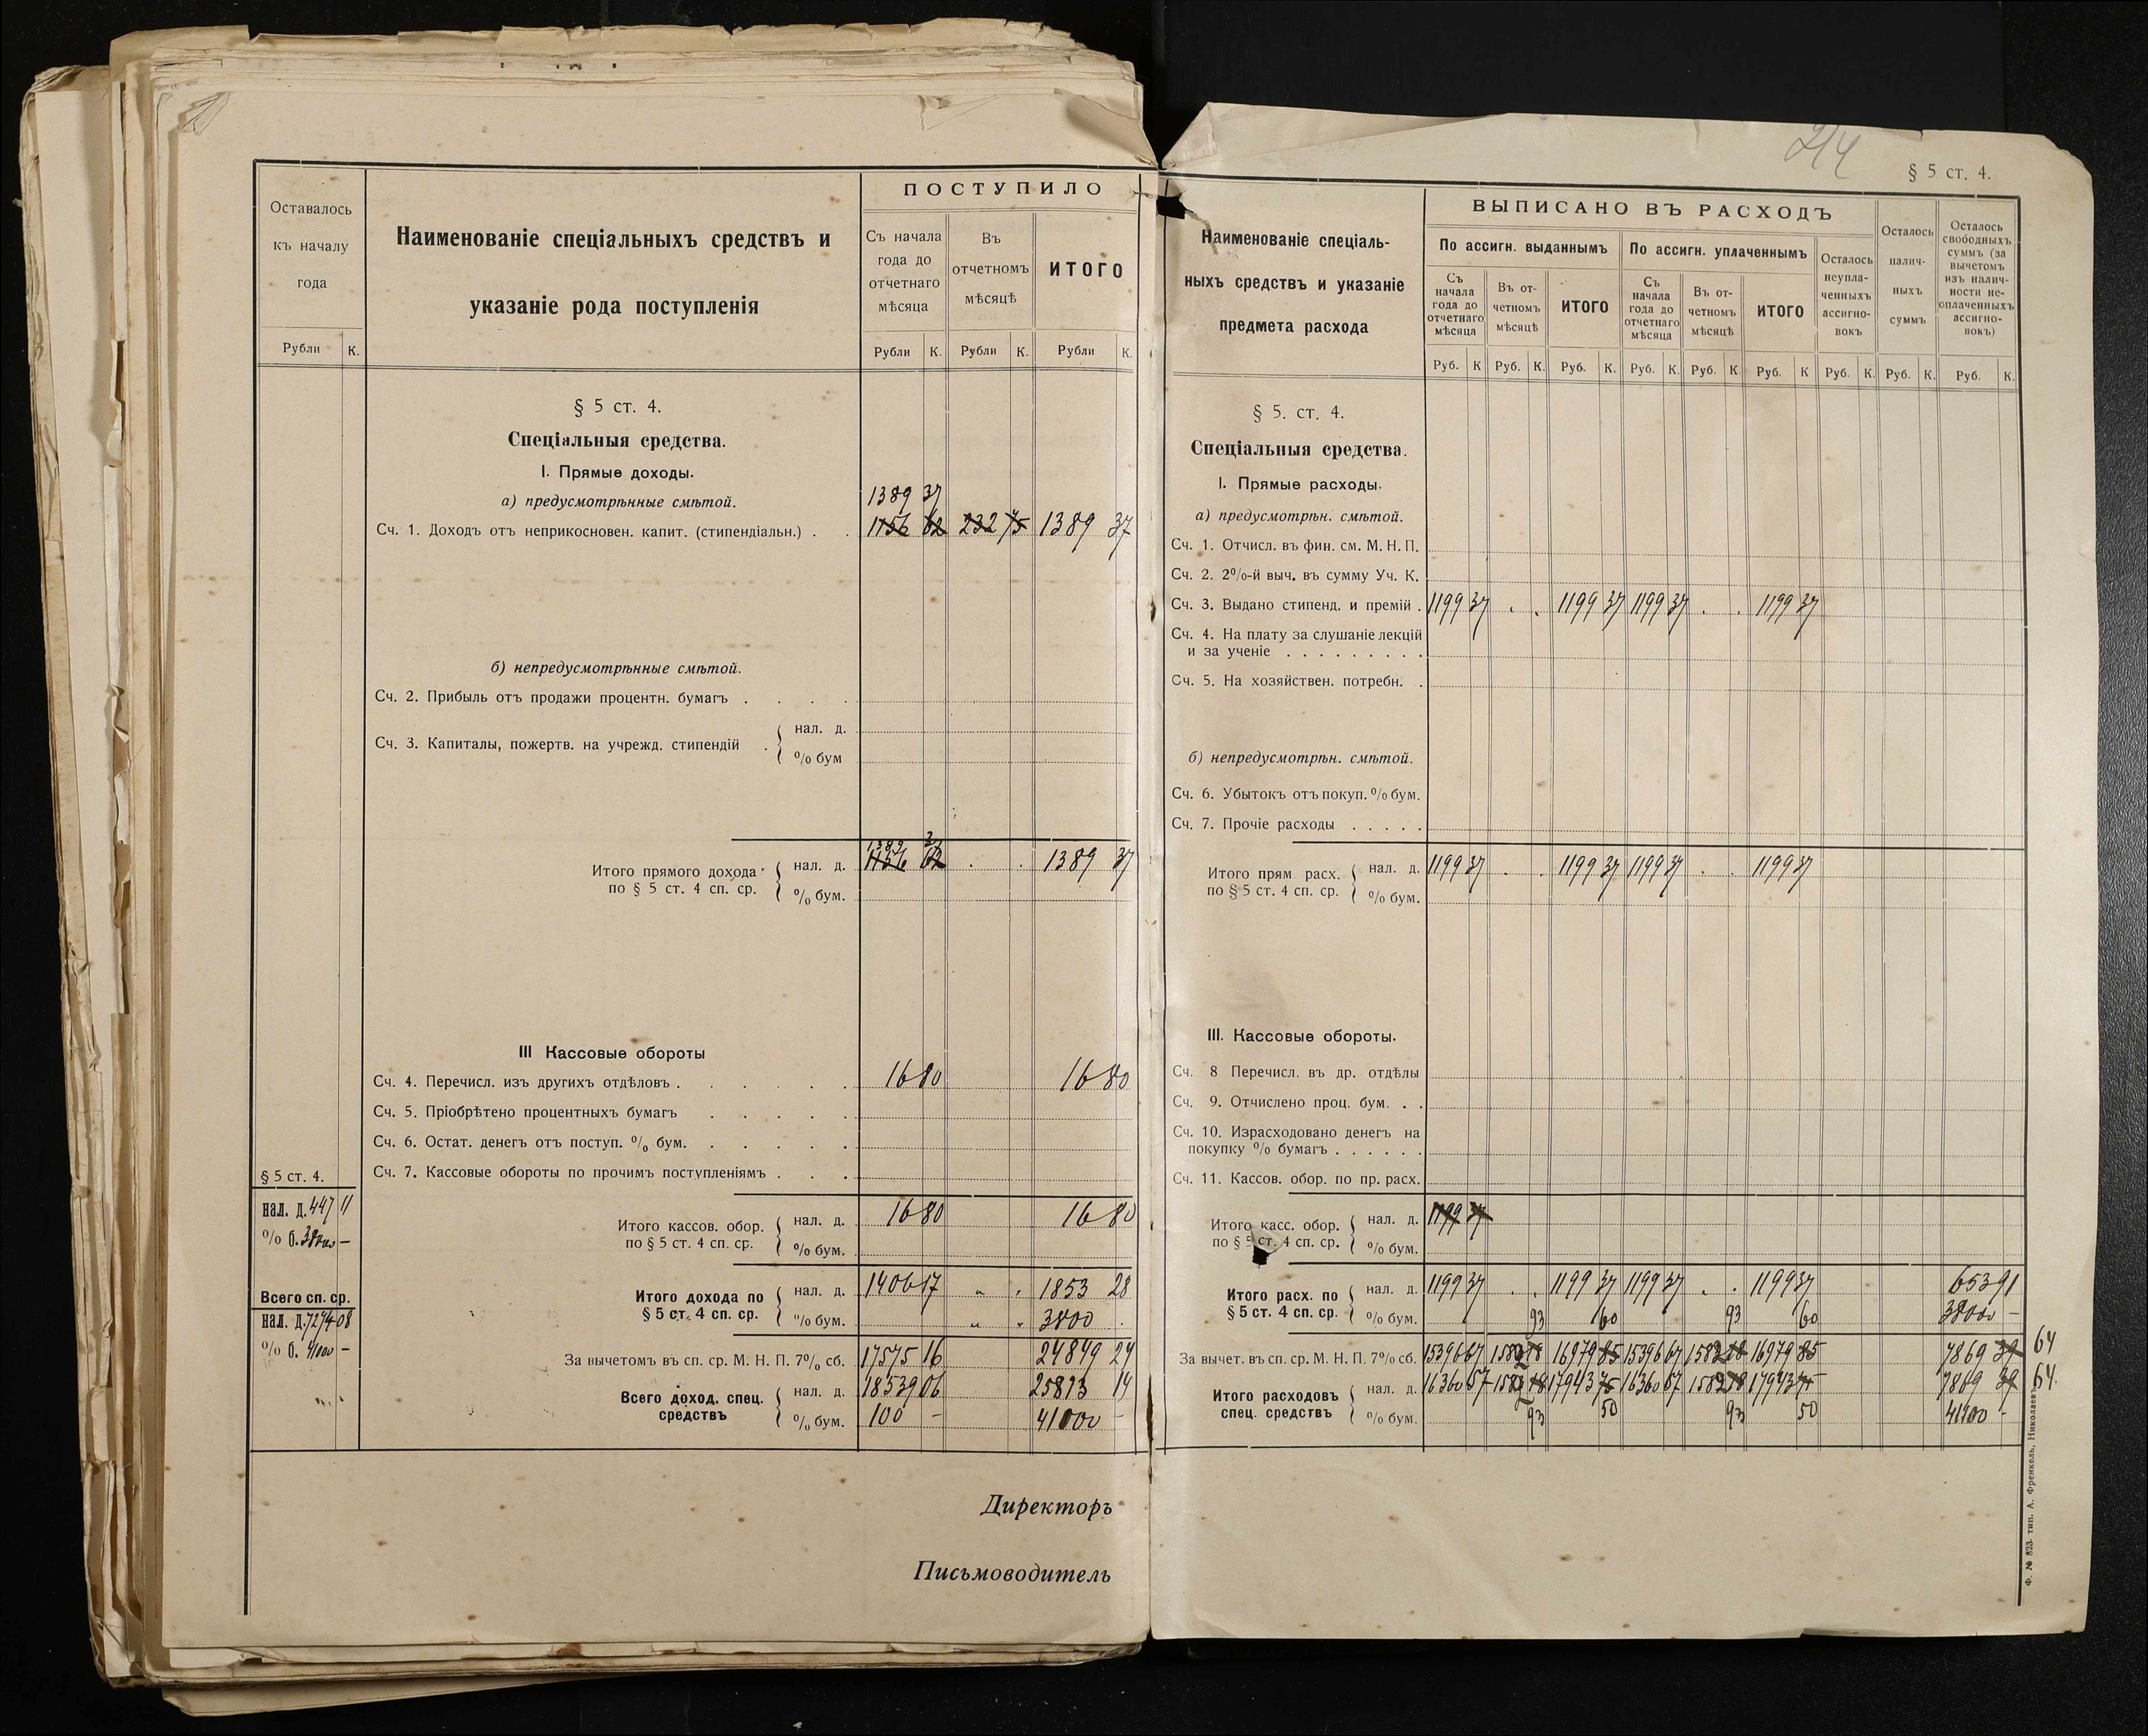 214
§ 5 ст. 4.
Оставалось
къ началу
года
Рубли К.
Наименованіе спеціальныхъ средствъ и
указаніе рода поступленія
ПОСТУПИЛО
Съ начала
года до
отчетнаго
мѣсяца
Въ
отчетномъ
мѣсяцѣ
ИТОГО
Рубли К. Рубли К. Рубли К.
§ 5 ст. 4.
Спеціальныя средства.
I. Прямые доходы.
а) предусмотрѣнные смѣтой.
1389 37
Сч. 1. Доходъ отъ неприкосновен. капит. (стипендіальн.) . . 1156 62 232 75 1389 37
б) непредусмотрѣнные смѣтой.
Сч. 2. Прибыль отъ продажи процентн. бумагъ . . . .
Сч. 3. Капиталы, пожертв. на учрежд. стипендій . { нал. д.
% бум
1389 37
Итого прямого дохода { нал. д. 1156 62 . . 1389 37
по § 5 ст. 4 сп. ср. { % бум.
III Кассовые обороты
Сч. 4. Перечисл. изъ другихъ отдѣловъ . . . . . . 16 80 16 80
Сч. 5. Пріобрѣтено процентныхъ бумагъ . . . . .
Сч. 6. Остат. денегъ отъ поступ. % бум. . . . . .
Сч. 7. Кассовые обороты по прочимъ поступленіямъ . . .
§ 5 ст. 4.
нал. д. 447 11
% б. 3800 —
Итого кассов. обор. { нал. д. 16 80 16 80
по § 5 ст. 4 сп. ср. { % бум.
Всего сп. ср.
нал. д. 7274 08
% б. 41000 —
Итого дохода по { нал. д. 1406 17 „ . 1853 28
§ 5 ст. 4 сп. ср. { % бум. „ „ 3800 .
За вычетомъ въ сп. ср. М. Н. П. 7% сб. 17575 16 24849 24
Всего доход. спец. { нал. д. 18539 06 25813 14
средствъ { % бум. 100 — 41000 —
Директоръ
Письмоводитель
Наименованіе спеціаль-
ныхъ средствъ и указаніе
предмета расхода
ВЫПИСАНО ВЪ РАСХОДЪ
По ассигн. выданнымъ По ассигн. уплаченнымъ
Съ
начала
года до
отчетнаго
мѣсяца
Въ от-
четномъ
мѣсяцѣ
ИТОГО
Съ
начала
года до
отчетнаго
мѣсяца
Въ от-
четномъ
мѣсяцѣ
ИТОГО
Осталось
неупла-
ченныхъ
ассигно-
вокъ
Осталось
налич-
ныхъ
суммъ
Осталось
свободныхъ
суммъ (за
вычетомъ
изъ налич-
ности не-
оплаченныхъ
ассигно-
вокъ)
Руб. К Руб. К. Руб. К. Руб. К. Руб. К Руб. К Руб. К. Руб. К. Руб. К.
§ 5. ст. 4.
Спеціальныя средства.
I. Прямые расходы.
а) предусмотрѣн. смѣтой.
Сч. 1. Отчисл. въ фин. см. М. Н. П.
Сч. 2. 2%-й выч. въ сумму Уч. К.
Сч. 3. Выдано стипенд. и премій . 1199 37 . . 1199 37 1199 37 . . 1199 37
Сч. 4. На плату за слушаніе лекцій
и за ученіе . . . . . . . . .
Сч. 5. На хозяйствен. потребн. .
б) непредусмотрѣн. смѣтой.
Сч. 6. Убытокъ отъ покуп. % бум.
Сч. 7. Прочіе расходы . . . . .
Итого прям расх. { нал. д. 1199 37 . . 1199 37 1199 37 . . 1199 37
по § 5 ст. 4 сп. ср. { % бум.
III. Кассовые обороты.
Сч. 8 Перечисл. въ др. отдѣлы
Сч. 9. Отчислено проц. бум. . .
Сч. 10. Израсходовано денегъ на
покупку % бумагъ . . . . . .
Сч. 11. Кассов. обор. по пр. расх.
Итого касс. обор. { нал. д. 1199 37
по § 5 ст. 4 сп. ср. { % бум.
Итого расх. по { нал. д. 1199 37 . . 1199 37 1199 37 . . 1199 37 653 91
§ 5 ст. 4 сп. ср. { % бум. 3800 —
93 60 93 60
За вычет. въ сп. ср. М. Н. П. 7% сб. 15396 67 16979 85 15396 67 16979 85 7869 39 64
Итого расходовъ { нал. д. 16360 57 17943 75 16360 57 17943 75 7869 39 64.
спец. средствъ { % бум. 41000 -
93 50 93 50
Ф. № 823 тип. А. Френкель, Николаевъ